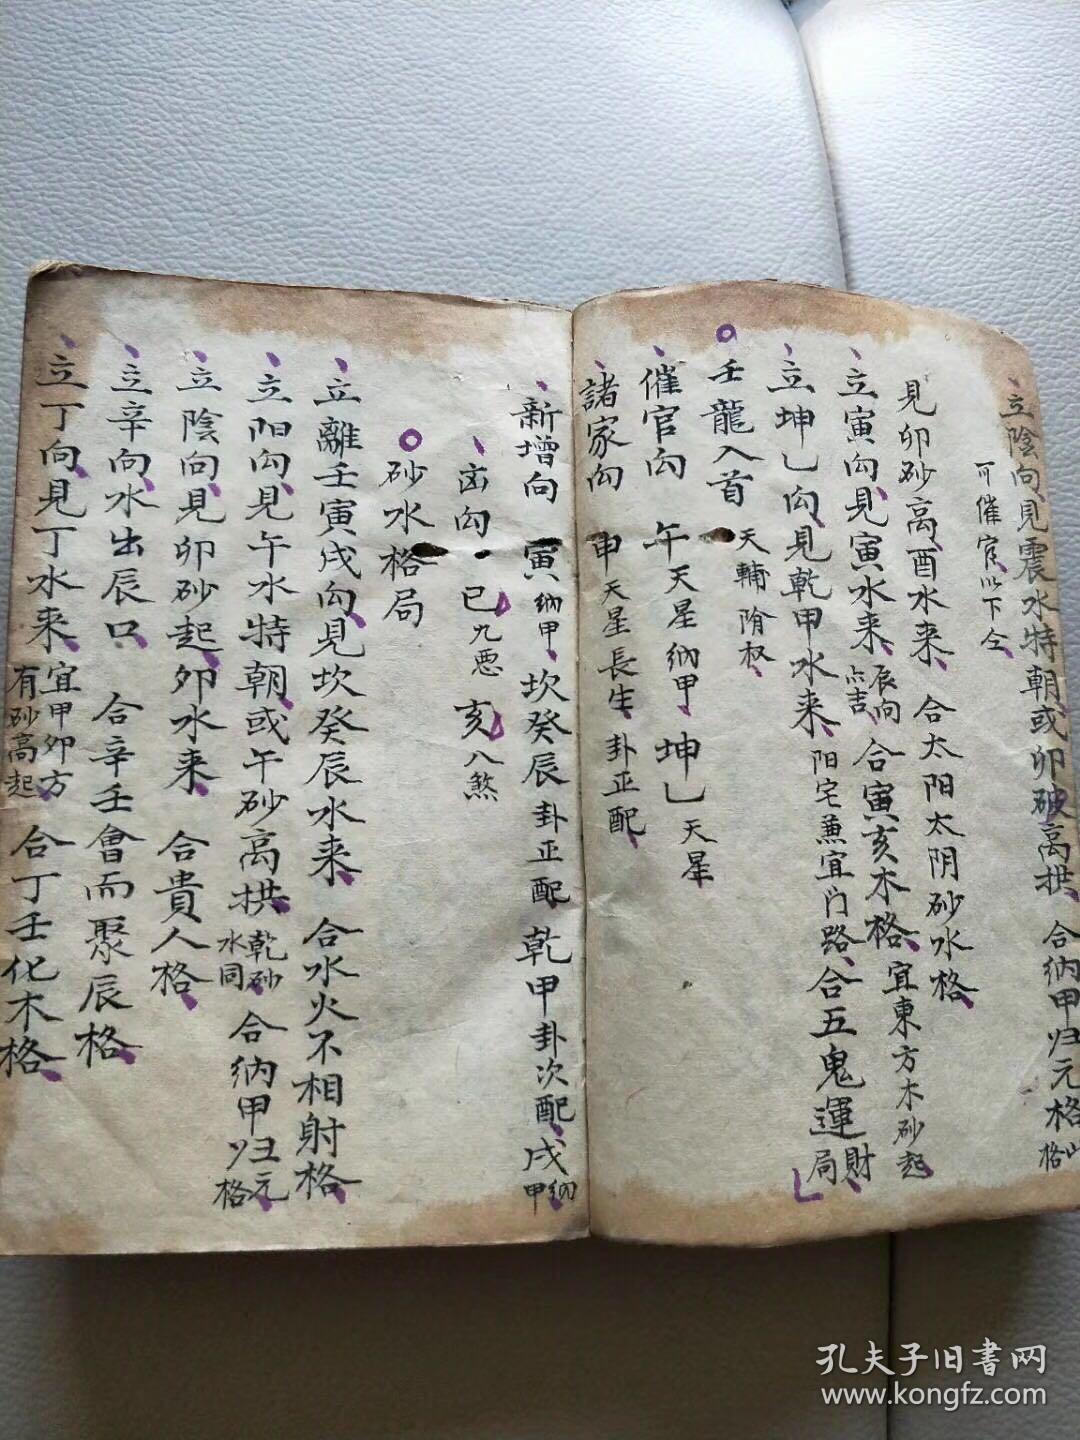 立陰向見震水特朝或卯破高拱 合納甲归元格
可催官以下仝
見卯砂高酉水来 合太阳太阴砂水格
立寅向見寅水来辰向亦吉 合寅亥木格宜東方木砂起
立坤乚向見乾甲水来阳宅兼宜门路合五鬼運財局
壬龍入首 天輔 阶权
催官向 午天星納甲 坤乚天星
諸家向 申天星長生卦正配
新增向 寅納甲坎癸辰卦正配乾甲卦次配戌納甲
凶向 巳九惡 亥八煞
砂水格局
立離壬寅戌向見坎癸辰水来 合水火不相射格
立阳向見午水特朝或午砂高拱乾砂水同 合納甲归元格
立陰向見卯砂起卯水来 合貴人格
立辛向水出辰口 合辛壬會而聚辰格
立丁向見丁水来宜甲卯方有砂高起 合丁壬化木格
孔夫子旧書网
www.kongfz.com